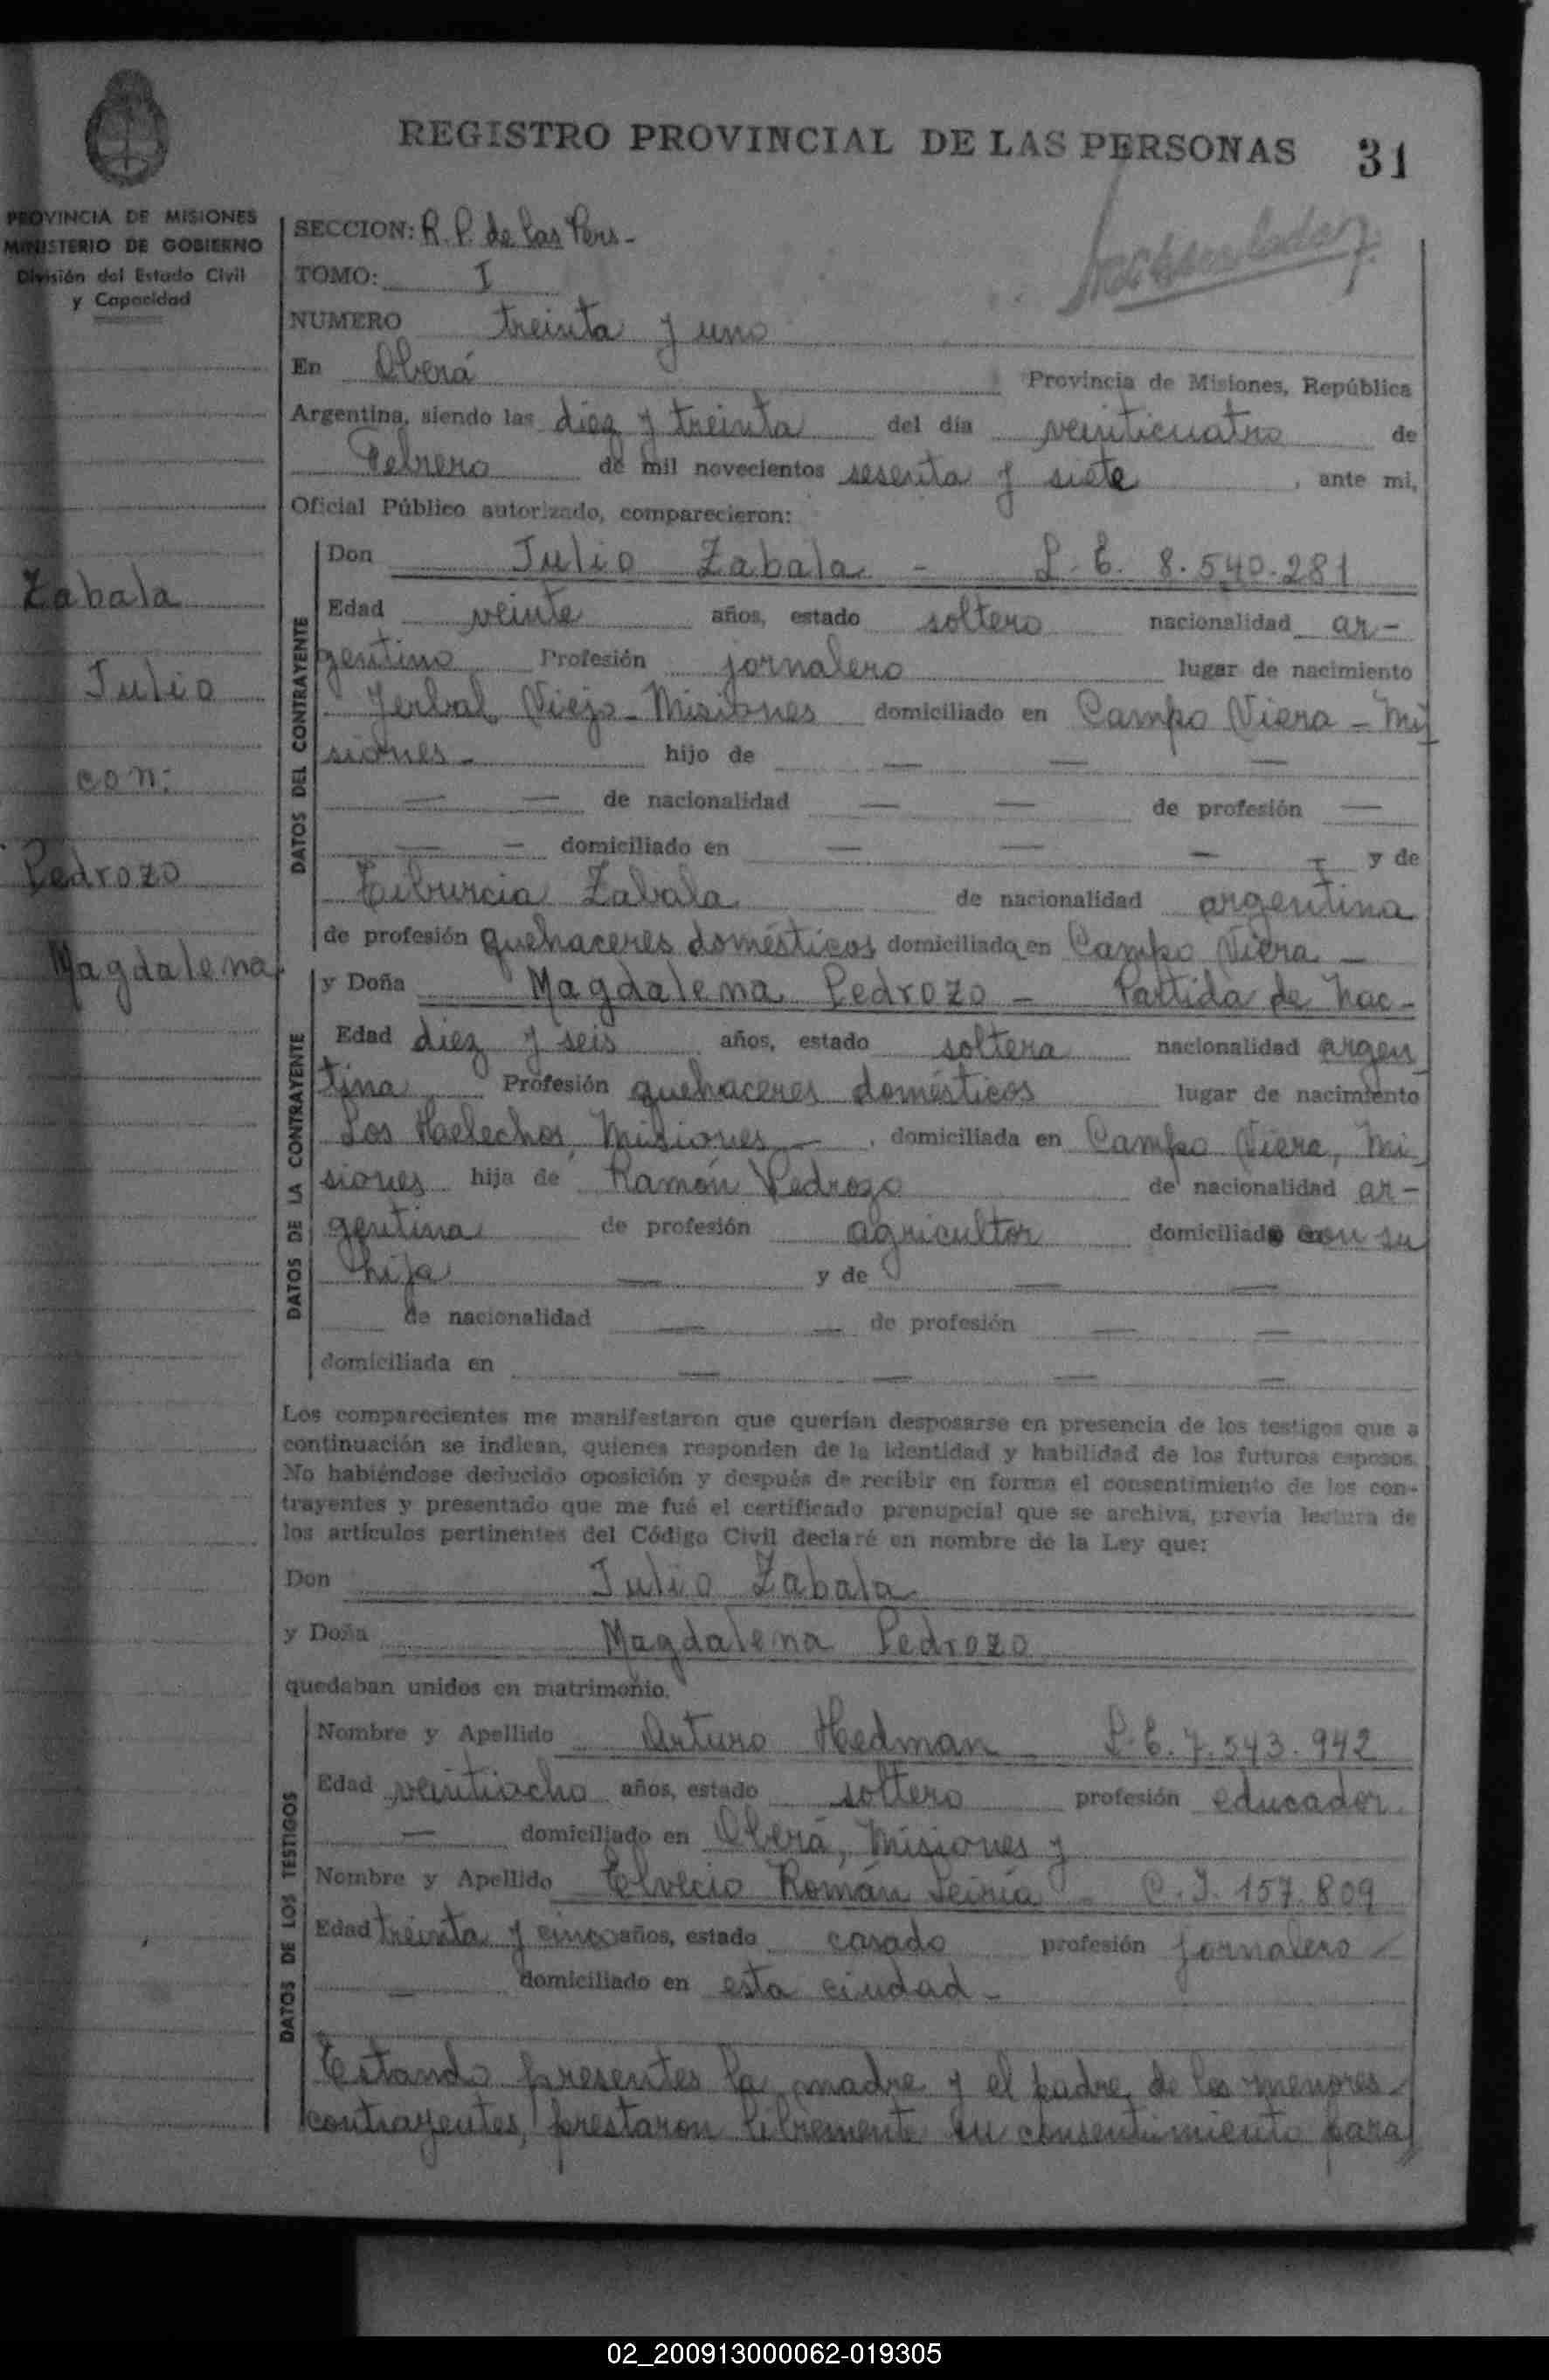 REGISTRO PROVINCIAL DE LAS PERSONAS 31
PROVINCIA DE MISIONES
MINISTERIO DE GOBIERNO
División del Estado Civil
y Capacidad
SECCION: R. P. de las Pers-
TOMO: I
NUMERO treinta y uno
En Oberá Provincia de Misiones, República
Argentina, siendo las diez y treinta del día veinticuatro de
Febrero de mil novecientos sesenta y siete, ante mi,
Oficial Público autorizado, comparecieron:
Zabala
Julio
con:
Pedrozo
Magdalena
DATOS DEL CONTRAYENTE
Don Julio Zabala - L. E. 8.540.281
Edad veinte años, estado soltero nacionalidad ar-
gentino Profesión jornalero lugar de nacimiento
Yerbal Viejo - Misiones domiciliado en Campo Viera - Mi
siones - hijo de — — —
— — de nacionalidad — — de profesión —
— — domiciliado en — — — — y de
Tiburcia Zabala de nacionalidad argentina
de profesión quehaceres domésticos domiciliada en Campo Viera -
DATOS DE LA CONTRAYENTE
y Doña Magdalena Pedrozo - Partida de Nac-
Edad diez y seis años, estado soltera nacionalidad argen
tina Profesión quehaceres domésticos lugar de nacimiento
Los Helechos, Misiones - , domiciliada en Campo Viera, Mi
siones hija de Ramón Pedrozo de nacionalidad ar-
gentina de profesión agricultor domiciliado con su
hija — y de — —
de nacionalidad — — de profesión — —
domiciliada en — — — —
Los comparecientes me manifestaron que querían desposarse en presencia de los testigos que a
continuación se indican, quienes responden de la identidad y habilidad de los futuros esposos.
No habiéndose deducido oposición y después de recibir en forma el consentimiento de los con-
trayentes y presentado que me fué el certificado prenupcial que se archiva, previa lectura de
los artículos pertinentes del Código Civil declaré en nombre de la Ley que:
Don Julio Zabala
y Doña Magdalena Pedrozo
quedaban unidos en matrimonio.
DATOS DE LOS TESTIGOS
Nombre y Apellido Arturo Hedman L. E. 7.543.942
Edad veintiocho años, estado soltero profesión educador
— domiciliado en Oberá, Misiones y
Nombre y Apellido Elvecio Román - C. I. 157.809
Edad treinta y cinco años, estado casado profesión jornalero -
— domiciliado en esta ciudad -
Estando presentes la madre y el padre de los menores
contrayentes, prestaron libremente su consentimiento para
02_200913000062-019305